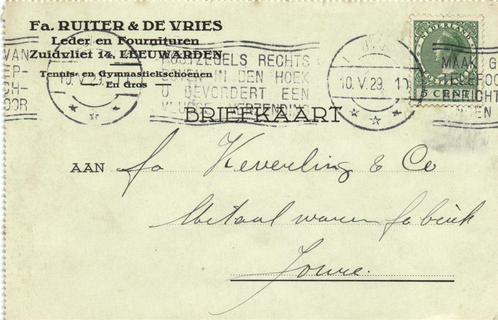 Fa. RUITER & DE VRIES
Leder en Fournituren
Zuidvliet 14, LEEUWARDEN
Tennis- en Gymnastiekschoenen
En gros
POSTZEGELS RECHTS
IN DEN HOEK
U BEVORDERT EEN
VLUGGE VERZENDING
10.V.29.
MAAK G
TELEFOO
5 CENT
BRIEFKAART
AAN fa Keverling & Co
Metaalwarenfabriek
Joure.